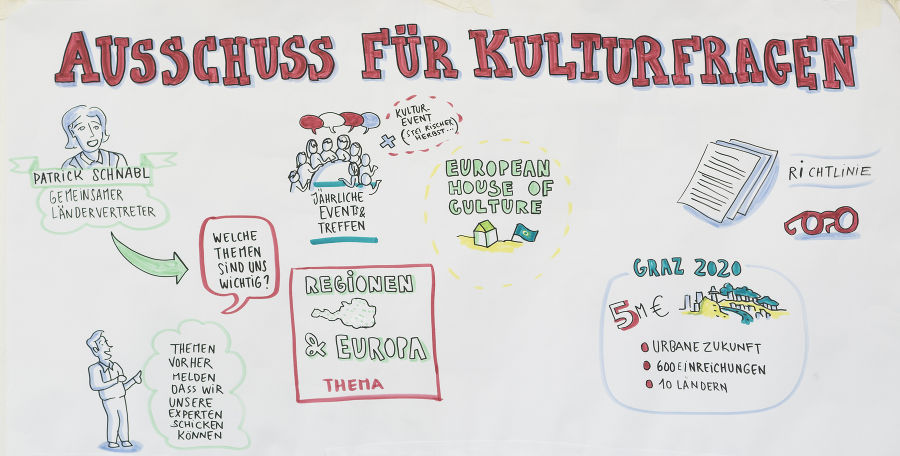 AUSSCHUSS FÜR KULTURFRAGEN
PATRICK SCHNABL
GEMEINSAMER
LÄNDERVERTRETER
WELCHE
THEMEN
SIND UNS
WICHTIG?
THEMEN
VORHER
MELDEN
DASS WIR
UNSERE
EXPERTEN
SCHICKEN
KÖNNEN
JÄHRLICHE
EVENTS &
TREFFEN
+
KULTUR-
EVENT
(STEIRISCHER
HERBST...)
REGIONEN
& EUROPA
THEMA
EUROPEAN
HOUSE OF
CULTURE
RICHTLINIE
GRAZ 2020
5M €
URBANE ZUKUNFT
600 EINREICHUNGEN
10 LÄNDERN